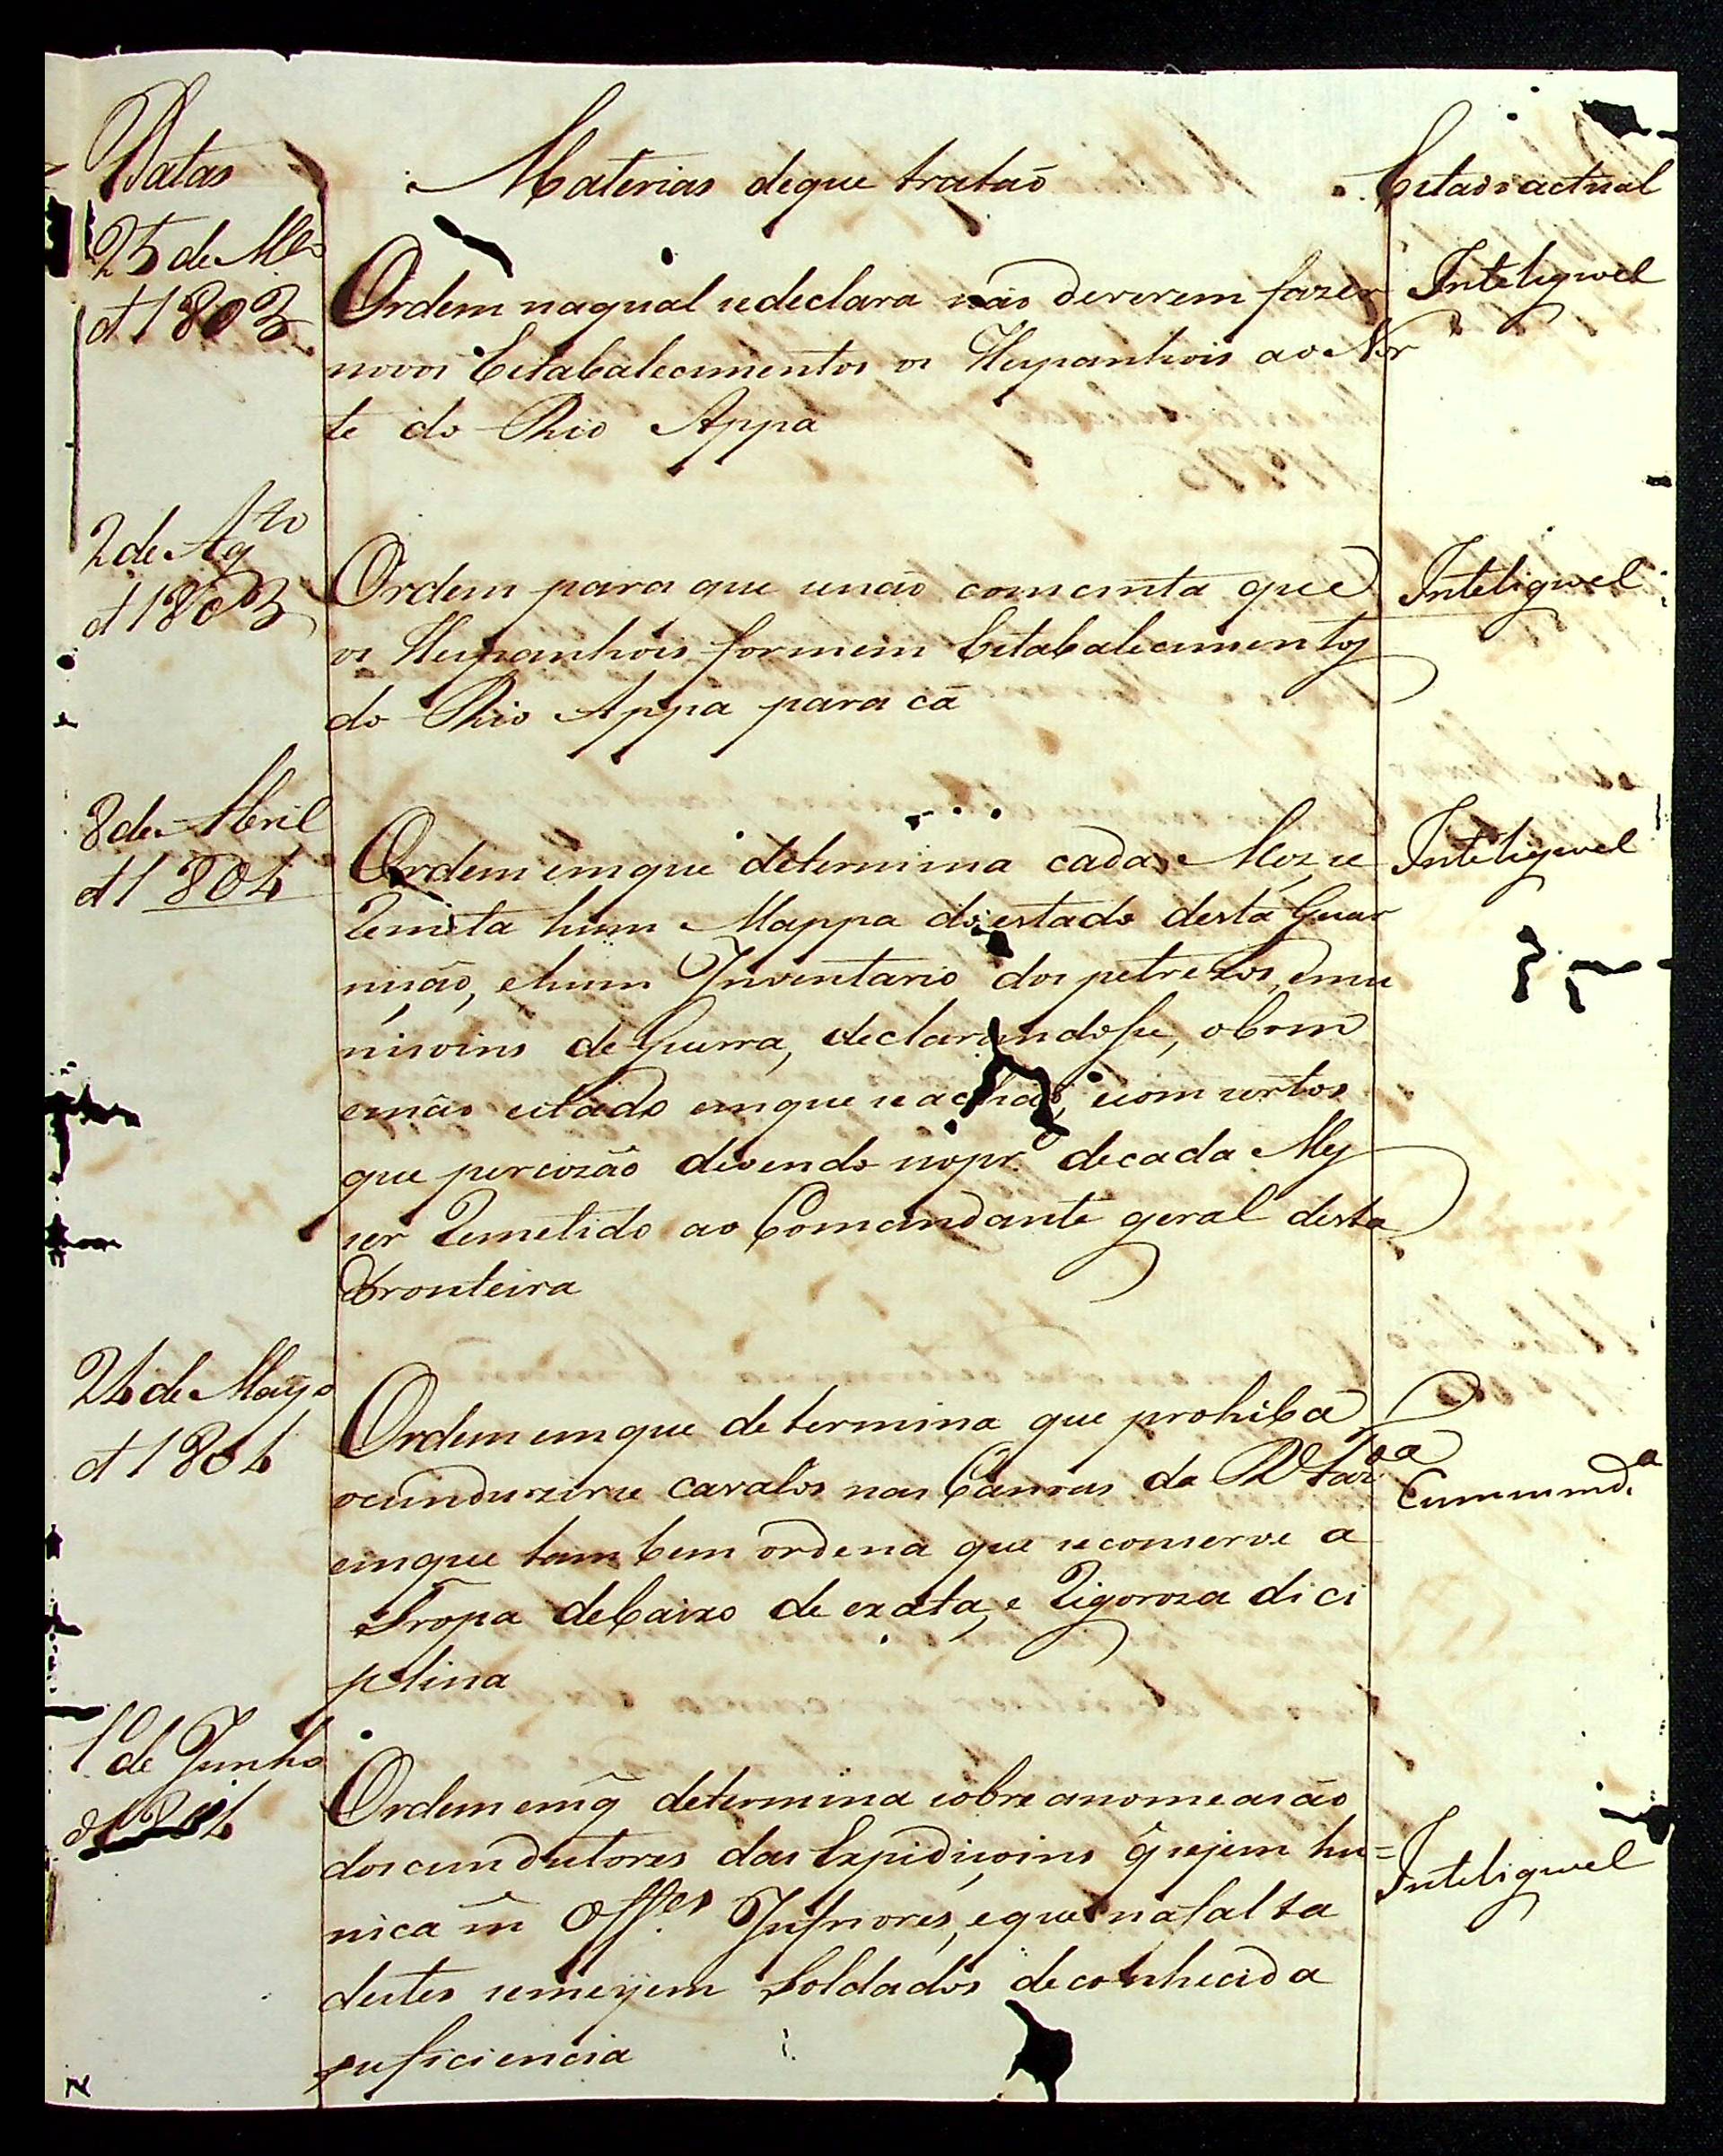 Datas
Materias deque tratão
Estado actual
25 de M.ço
d 1803
Ordem naqual sedeclara não deverem fazer
novos Estabalecimentos os Hespanhois ao Nor
te do Rio Appa
Inteligivel
2 de Ag.to
d 1803
Ordem para que senão comcinta que
os Hespanhois formem Estabalecimentos
do Rio Appa para cá
Inteligivel
8 de Abril
d 1804
Ordem emque determina cada Mez, se
Remeta hum Mappa do estado desta Guar
nisão, ehum Inventario dos petrexos, emu
nisoins de Guerra, declarandosse, obom
emáo estado emque seachão, ecomsertos
que percizão devendo nopr.o decada Mez
ser Remetido ao Comandante geral desta
Fronteira
Inteligivel
24 de Mayo
d 1804
Ordem emque determina que prohiba
ocunduzirse cavalos nas Canoas da R. Faz.da
emque tambem ordena que seconserve a
Tropa debaixo de exata, e Rigoroza dici
plina
1.o de Junho
d 1804
Ordem emq̃ determina sobre anomeasão
dos cundutores das Expidisoins q̃ sejem hu=
nica m̃ Off.es Inferiores, eque nafalta
destes senomeyem Soldados deconhecida
suficiencia
Inteligivel